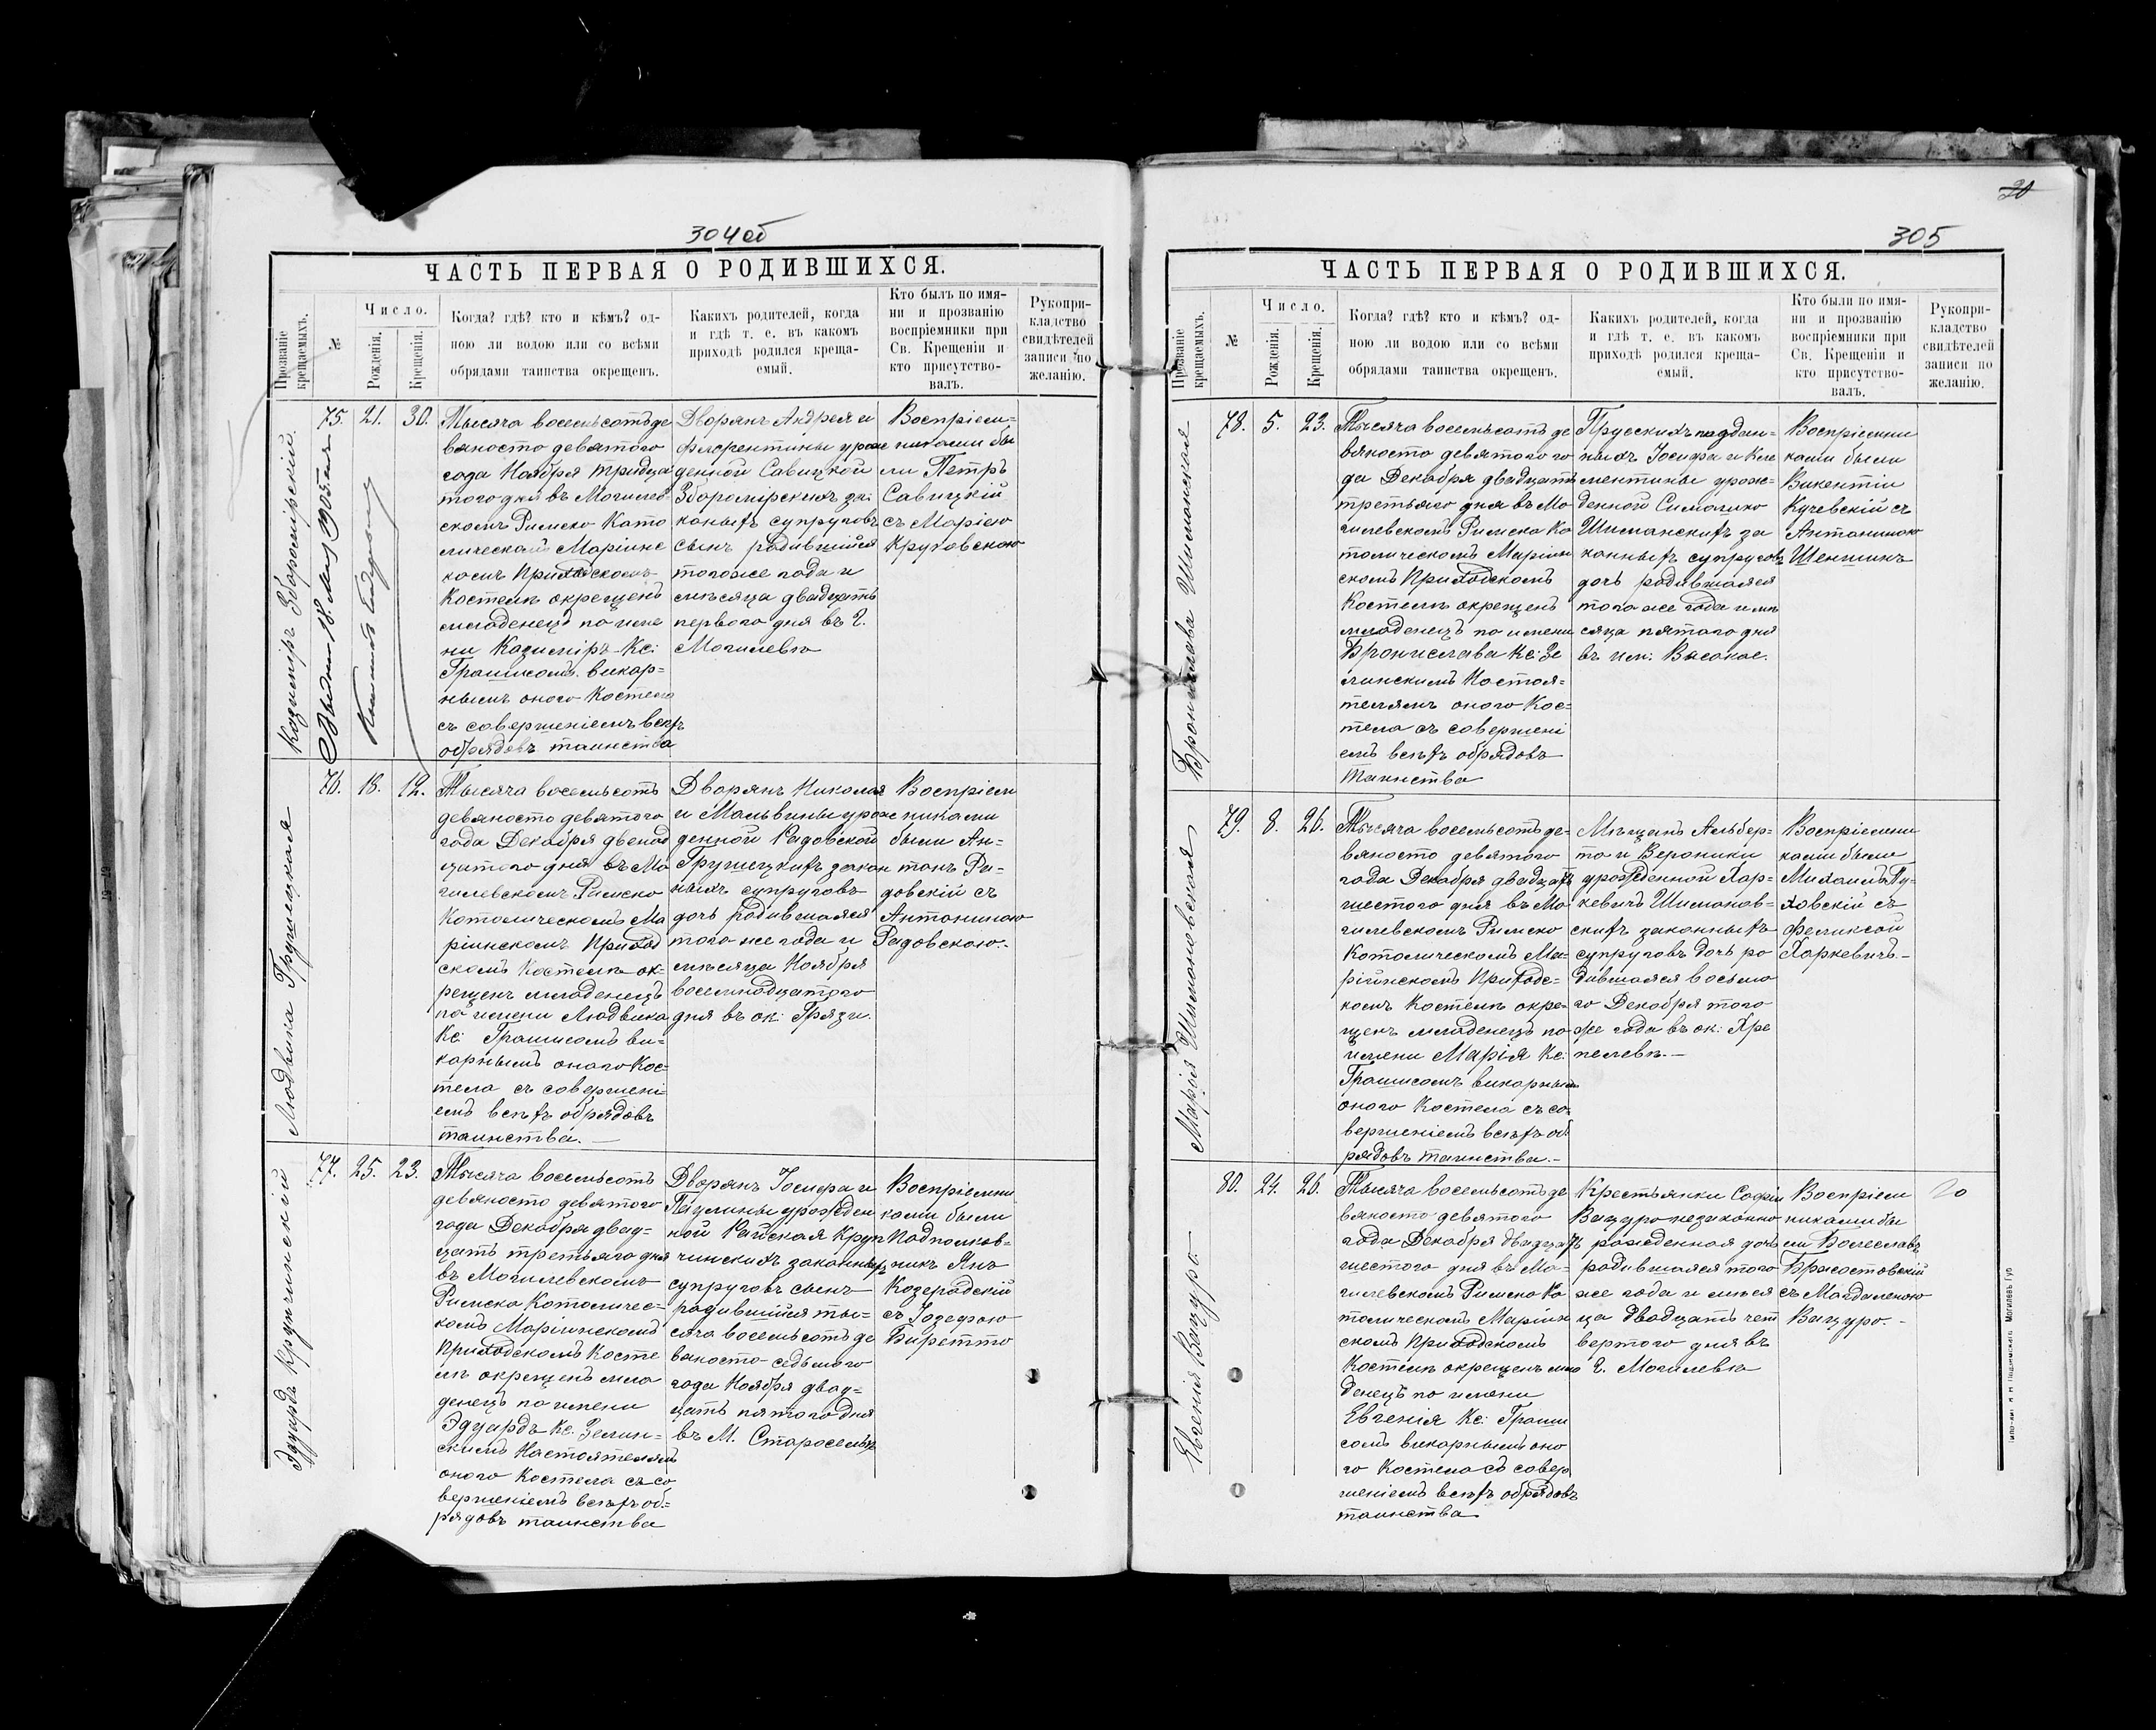 304 об
ЧАСТЬ ПЕРВАЯ О РОДИВШИХСЯ.
Прозваніе крещаемыхъ.
№
Число.
Рожденія.
Крещенія.
Когда? гдѣ? кто и кѣмъ? од-
ною ли водою или со всѣми
обрядами таинства окрещенъ.
Какихъ родителей, когда
и гдѣ т. е. въ какомъ
приходѣ родился креща-
емый.
Кто былъ по имя-
ни и прозванію
воспріемники при
Св. Крещеніи и
кто присутство-
валъ.
Рукопри-
кладство
свидѣтелей
записи по
желанію.
Казиміръ Збороміръскій.
75. 21. 30.
Тысяча восемьсотъ де
вяносто девятого
года Ноября тридца
того дня въ Могилев
скомъ Римско Като
лическомъ Маріинс
комъ Приходскомъ
Костелѣ окрещенъ
младенецъ по име
ни Казиміръ Кс:
Грашисомъ викар=
нымъ оного Костела
съ совершеніемъ всѣхъ
обрядовъ таинства
Дворянъ Андрея и
Флорентины урож
денной Савицкой
Збороміρскихъ за:
конныхъ супруговъ
сынъ родившійся
того же года и
мѣсяца двадцать
первого дня въ Г.
Могилевѣ
Воспріем=
никами бы
ли Петръ
Савицкій
съ Маріею
Круковскою
Людвика Грушецкая
76. 18. 12.
Тысяча восемьсотъ
девяносто девятого
года Декабря двенад
цатого дня въ Мо
гилевскомъ Римско
Католическомъ Ма
ріинскомъ Приход
скомъ Костелѣ ок=
рещенъ младенецъ
по имени Людвика
Кс: Грашисомъ ви=
карнымъ оного Кос=
тела съ совершені=
емъ всѣхъ обрядовъ
таинства.—
Дворянъ Николая
и Мальвины урож
денной Радовской
Грушецкихъ закон
ныхъ супруговъ
дочь родившаяся
того же года и
мѣсяца Ноября
восемнадцатого
дня въ ок: Грязи.
Воспріем
никами
были Ан=
тонъ Ра=
довскій съ
Антониною
Радовскою.
Эдуардъ Крупчинскій
77. 25. 23.
Тысяча восемьсотъ
девяносто девятого
года Декабря двад=
цать третьяго дня
въ Могилевскомъ
Римско Католичес=
комъ Маріинскомъ
Приходскомъ Косте
лѣ окрещенъ мла
денецъ по имени
Эдуардъ Кс: Зелин=
скимъ Настоятелемъ
оного Костела съ со
вершеніемъ всѣхъ об=
рядовъ таинства
Дворянъ Іосифа и
Паулины урожден
ной Райская Круп
чинскихъ законныхъ
супруговъ сынъ
родившійся ты=
сяча восемьсотъ де
вяносто седьмого
года Ноября двад=
цать пятого дня
въ М. Староселье
Воспріемни
ками были
Подполков=
никъ Янъ
Козерадскій
съ Іозефою
Биретто
20
305
ЧАСТЬ ПЕРВАЯ О РОДИВШИХСЯ.
Прозваніе крещаемыхъ.
№
Число.
Рожденія.
Крещенія.
Когда? гдѣ? кто и кѣмъ? од-
ною ли водою или со всѣми
обрядами таинства окрещенъ.
Какихъ родителей, когда
и гдѣ т. е. въ какомъ
приходѣ родился креща-
емый.
Кто были по имя-
ни и прозванію
воспріемники при
Св. Крещеніи и
кто присутство-
валъ.
Рукопри-
кладство
свидѣтелей
записи по
желанію.
Бронислава Шиманская
78. 5. 23.
Тысяча восемьсотъ де
вяносто девятого го
да Декабря двадцать
третьяго дня въ Мо
гилевскомъ Римско Ка
толическомъ Маріин
скомъ Приходскомъ
Костелѣ окрещенъ
младенецъ по имени
Бронислава Кс: Зе
линскимъ Настоя=
телемъ оного Кос=
тела съ совершені
емъ всѣхъ обрядовъ
таинства
Прусскихъ поддан=
ныхъ Іосифа и Кле
ментины урож=
денной Симашко
Шиманскихъ за
конныхъ супруговъ
дочь родившаяся
того же года и мѣ
сяца пятого дня
въ им: Высокое.
Воспріемни
ками были
Викентій
Кучевскій съ
Антониною
Шеншинъ
Марія Шимановская
79. 8. 26.
Тысяча восемьсотъ де=
вяносто девятого
года Декабря двадцать
шестого дня въ Мо
гилевскомъ Римско
Католическомъ Ма=
ріинскомъ Приходс=
комъ Костелѣ окре=
щенъ младенецъ по
имени Марія Кс:
Грашисомъ викарнымъ
оного Костела съ со
вершеніемъ всѣхъ об
рядовъ таинства.—
Мѣщанъ Альбер=
та и Вероники
урожденной Хар=
кевичъ Шиманов=
скихъ законныхъ
супруговъ дочь ро
дившаяся восьмо
го Декабря того
же года въ ок: Хре
пелевѣ.—
Воспріемни
ками были
Михаилъ Пу=
ховскій съ
Феликсой
Харкевичъ.—
Евгенія Вацуро
80. 24. 26.
Тысяча восемьсотъ де
вяносто девятого
года Декабря двадцать
шестого дня въ Мо=
гилевскомъ Римско Ка
толическомъ Маріин
скомъ Приходскомъ
Костелѣ окрещенъ мла
денецъ по имени
Евгенія Кс: Граши
сомъ викарнымъ оно
го Костела съ совер
шеніемъ всѣхъ обрядовъ
таинства
Крестьянки Софіи
Вацуро незаконно
рожденная дочь
родившаяся того
же года и мѣся
ца двадцать чет
вертого дня въ
Г. Могилевѣ
Воспріем
никами бы
ли Болеславъ
Бржостовскій
съ Магдаленою
Вацуро.—